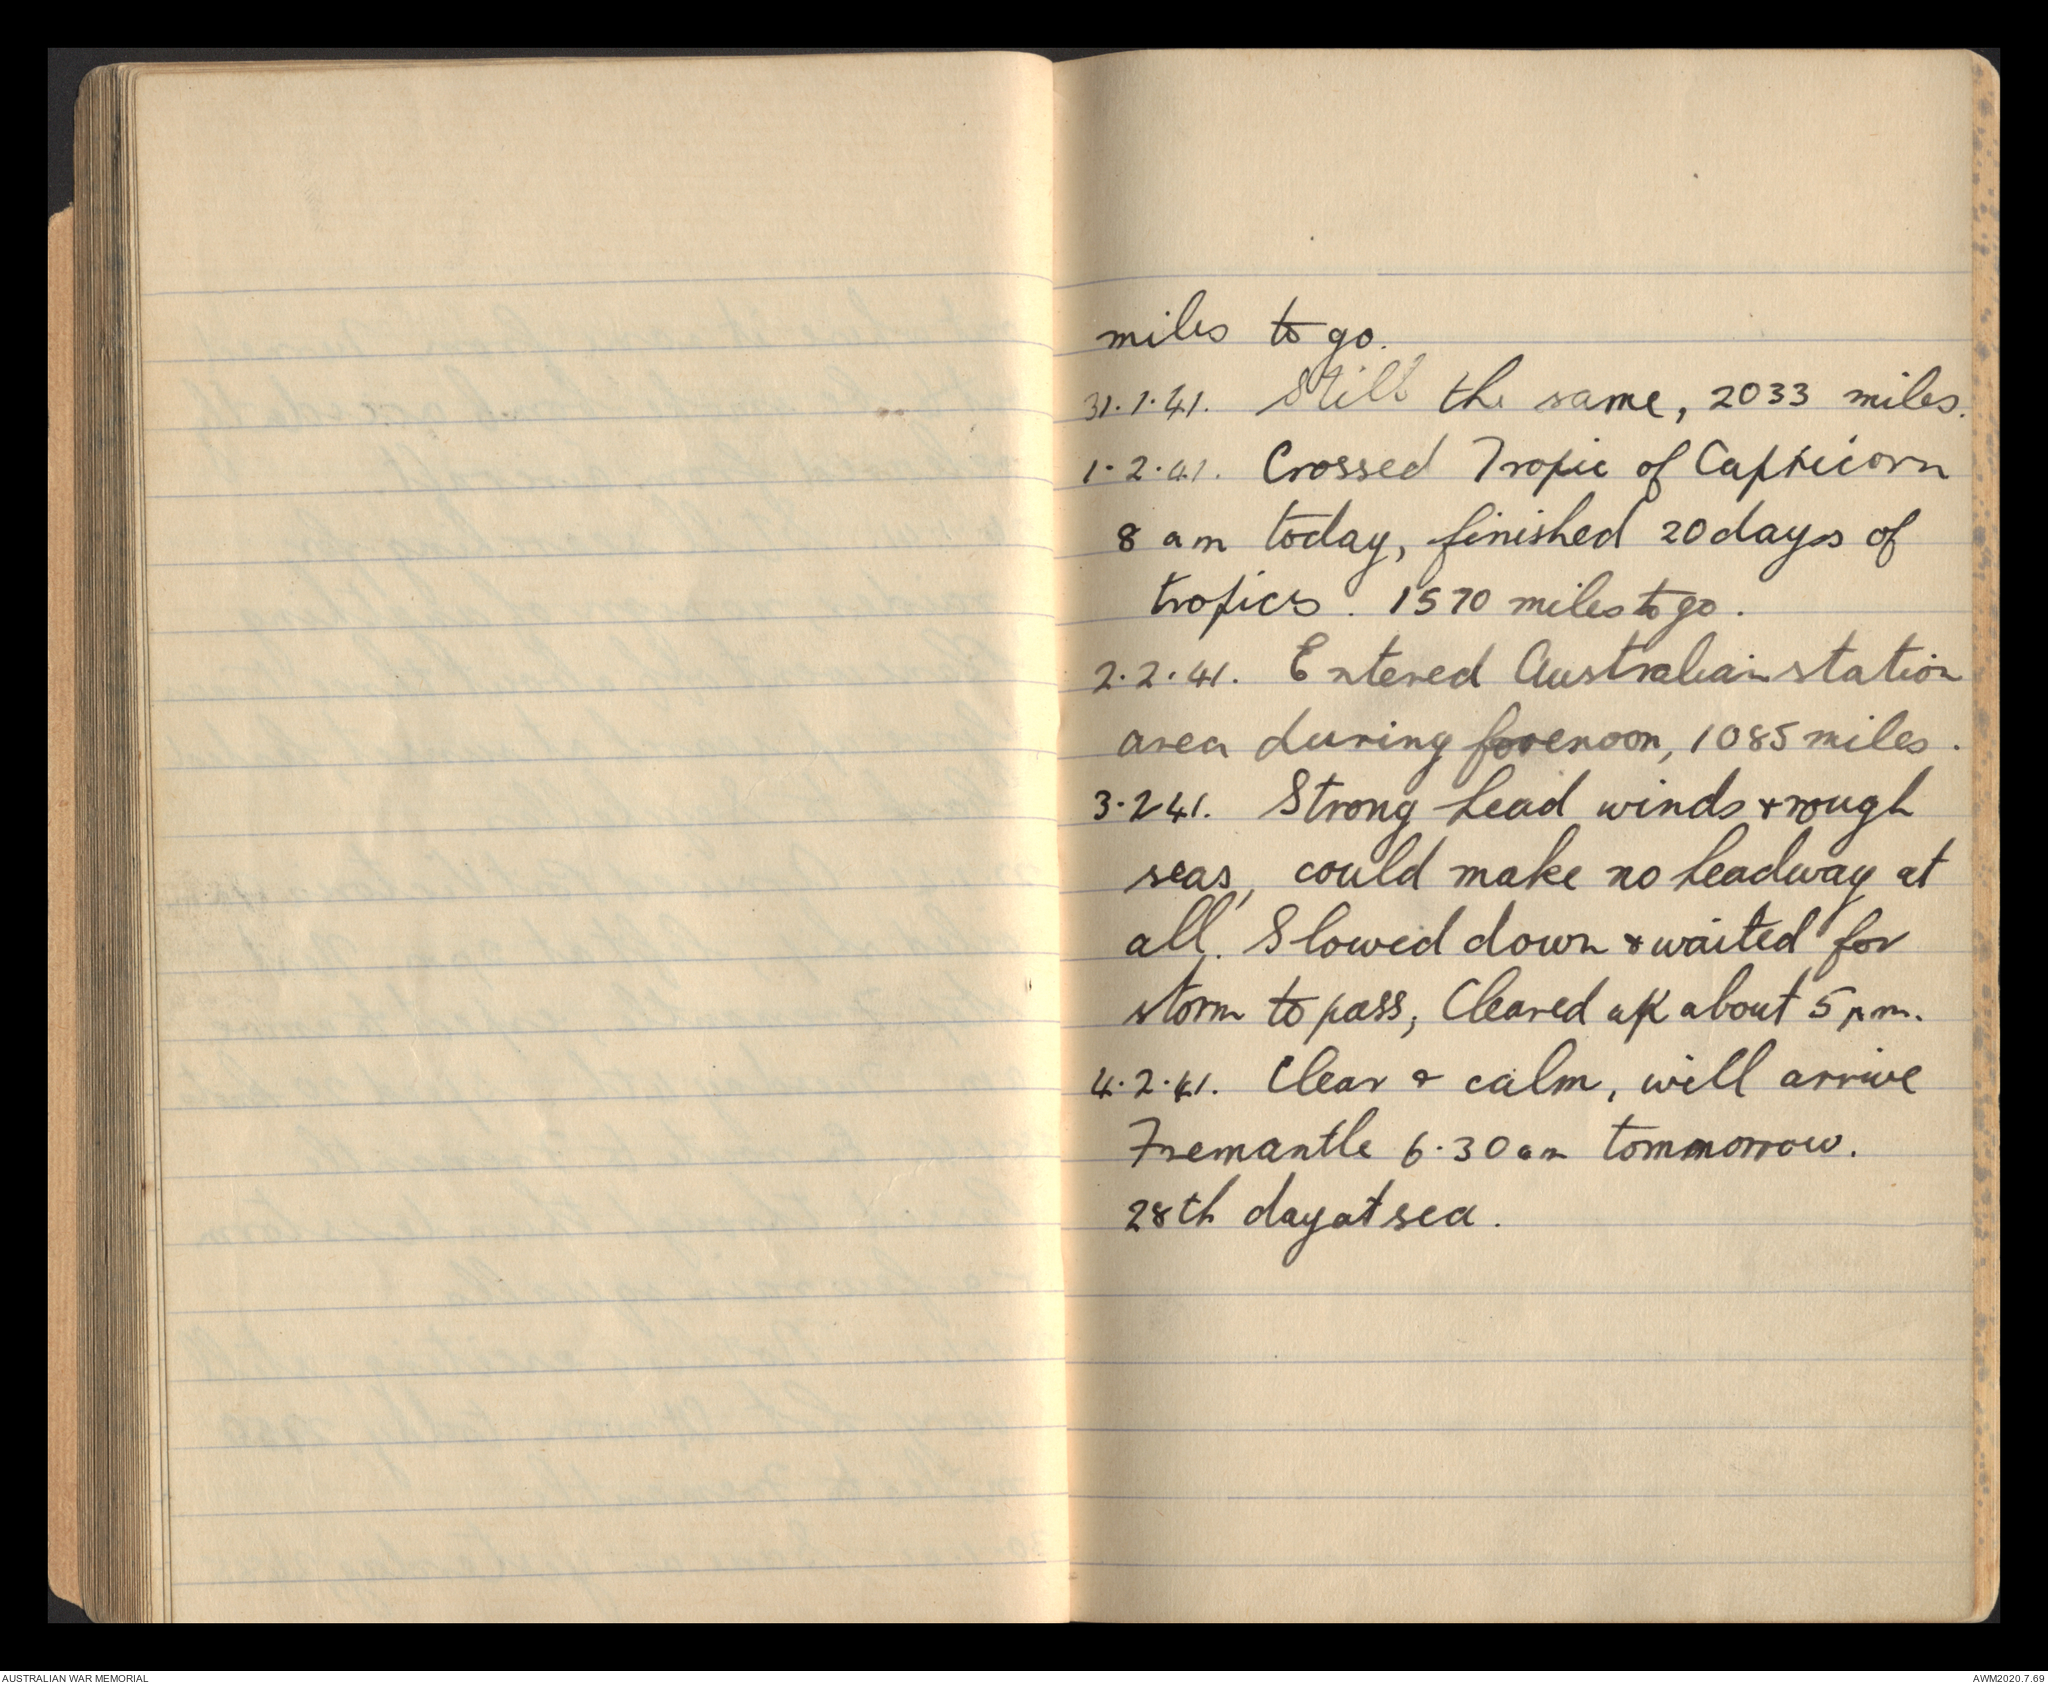 miles to go.
31.1.41. Still the same, 2033 miles.
1.2.41. Crossed Tropic of Capricorn
8 am today, finished 20 days of
tropics. 1570 miles to go.
2.2.41. Entered Australian station
area during forenoon, 1085 miles.
3.2.41. Strong head winds & rough
seas, could make no headway at
all. Slowed down & waited for
storm to pass, Cleared up about 5 pm.
4.2.41. Clear & calm, will arrive
Fremantle 6.30 am tommorrow.
28th day at sea.
AUSTRALIAN WAR MEMORIAL
AWM2020.7.69